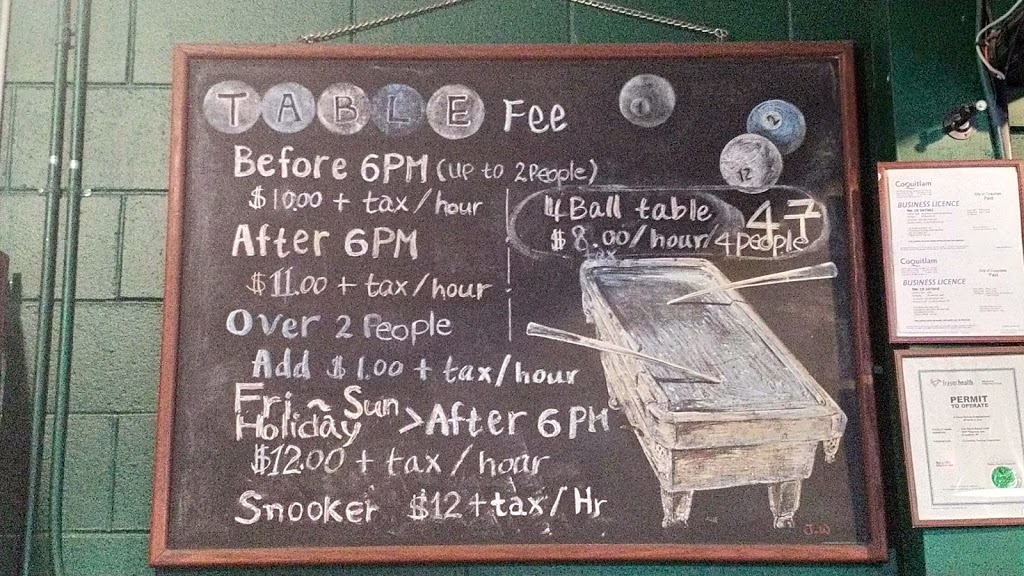 TABLE Fee
Before 6PM (up to 2People)
$10.00 + tax/hour
After 6PM
$11.00 + tax/hour
Over 2 People
Add $1.00 + tax/hour
Fri. ~ Sun
Holiday > After 6PM
$12.00 + tax/hour
Snooker $12 + tax/Hr
4Ball table 47
$8.00/hour/4people
tax
1
2
12
J.W
Coquitlam
City of Coquitlam
Paid
BUSINESS LICENCE
Coquitlam
City of Coquitlam
Paid
BUSINESS LICENCE
fraserhealth
PERMIT
TO OPERATE